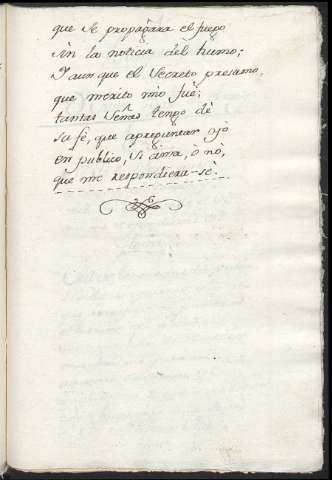 que se propagàra el fuego
sin la noticia dèl humo;
Y aun que el Secreto presumo,
que merito mìo fuè;
tantas Señas tengo dè
su fè, que à preguntar yò
en publico, si àma, ò nò,
què me respondiera sè.